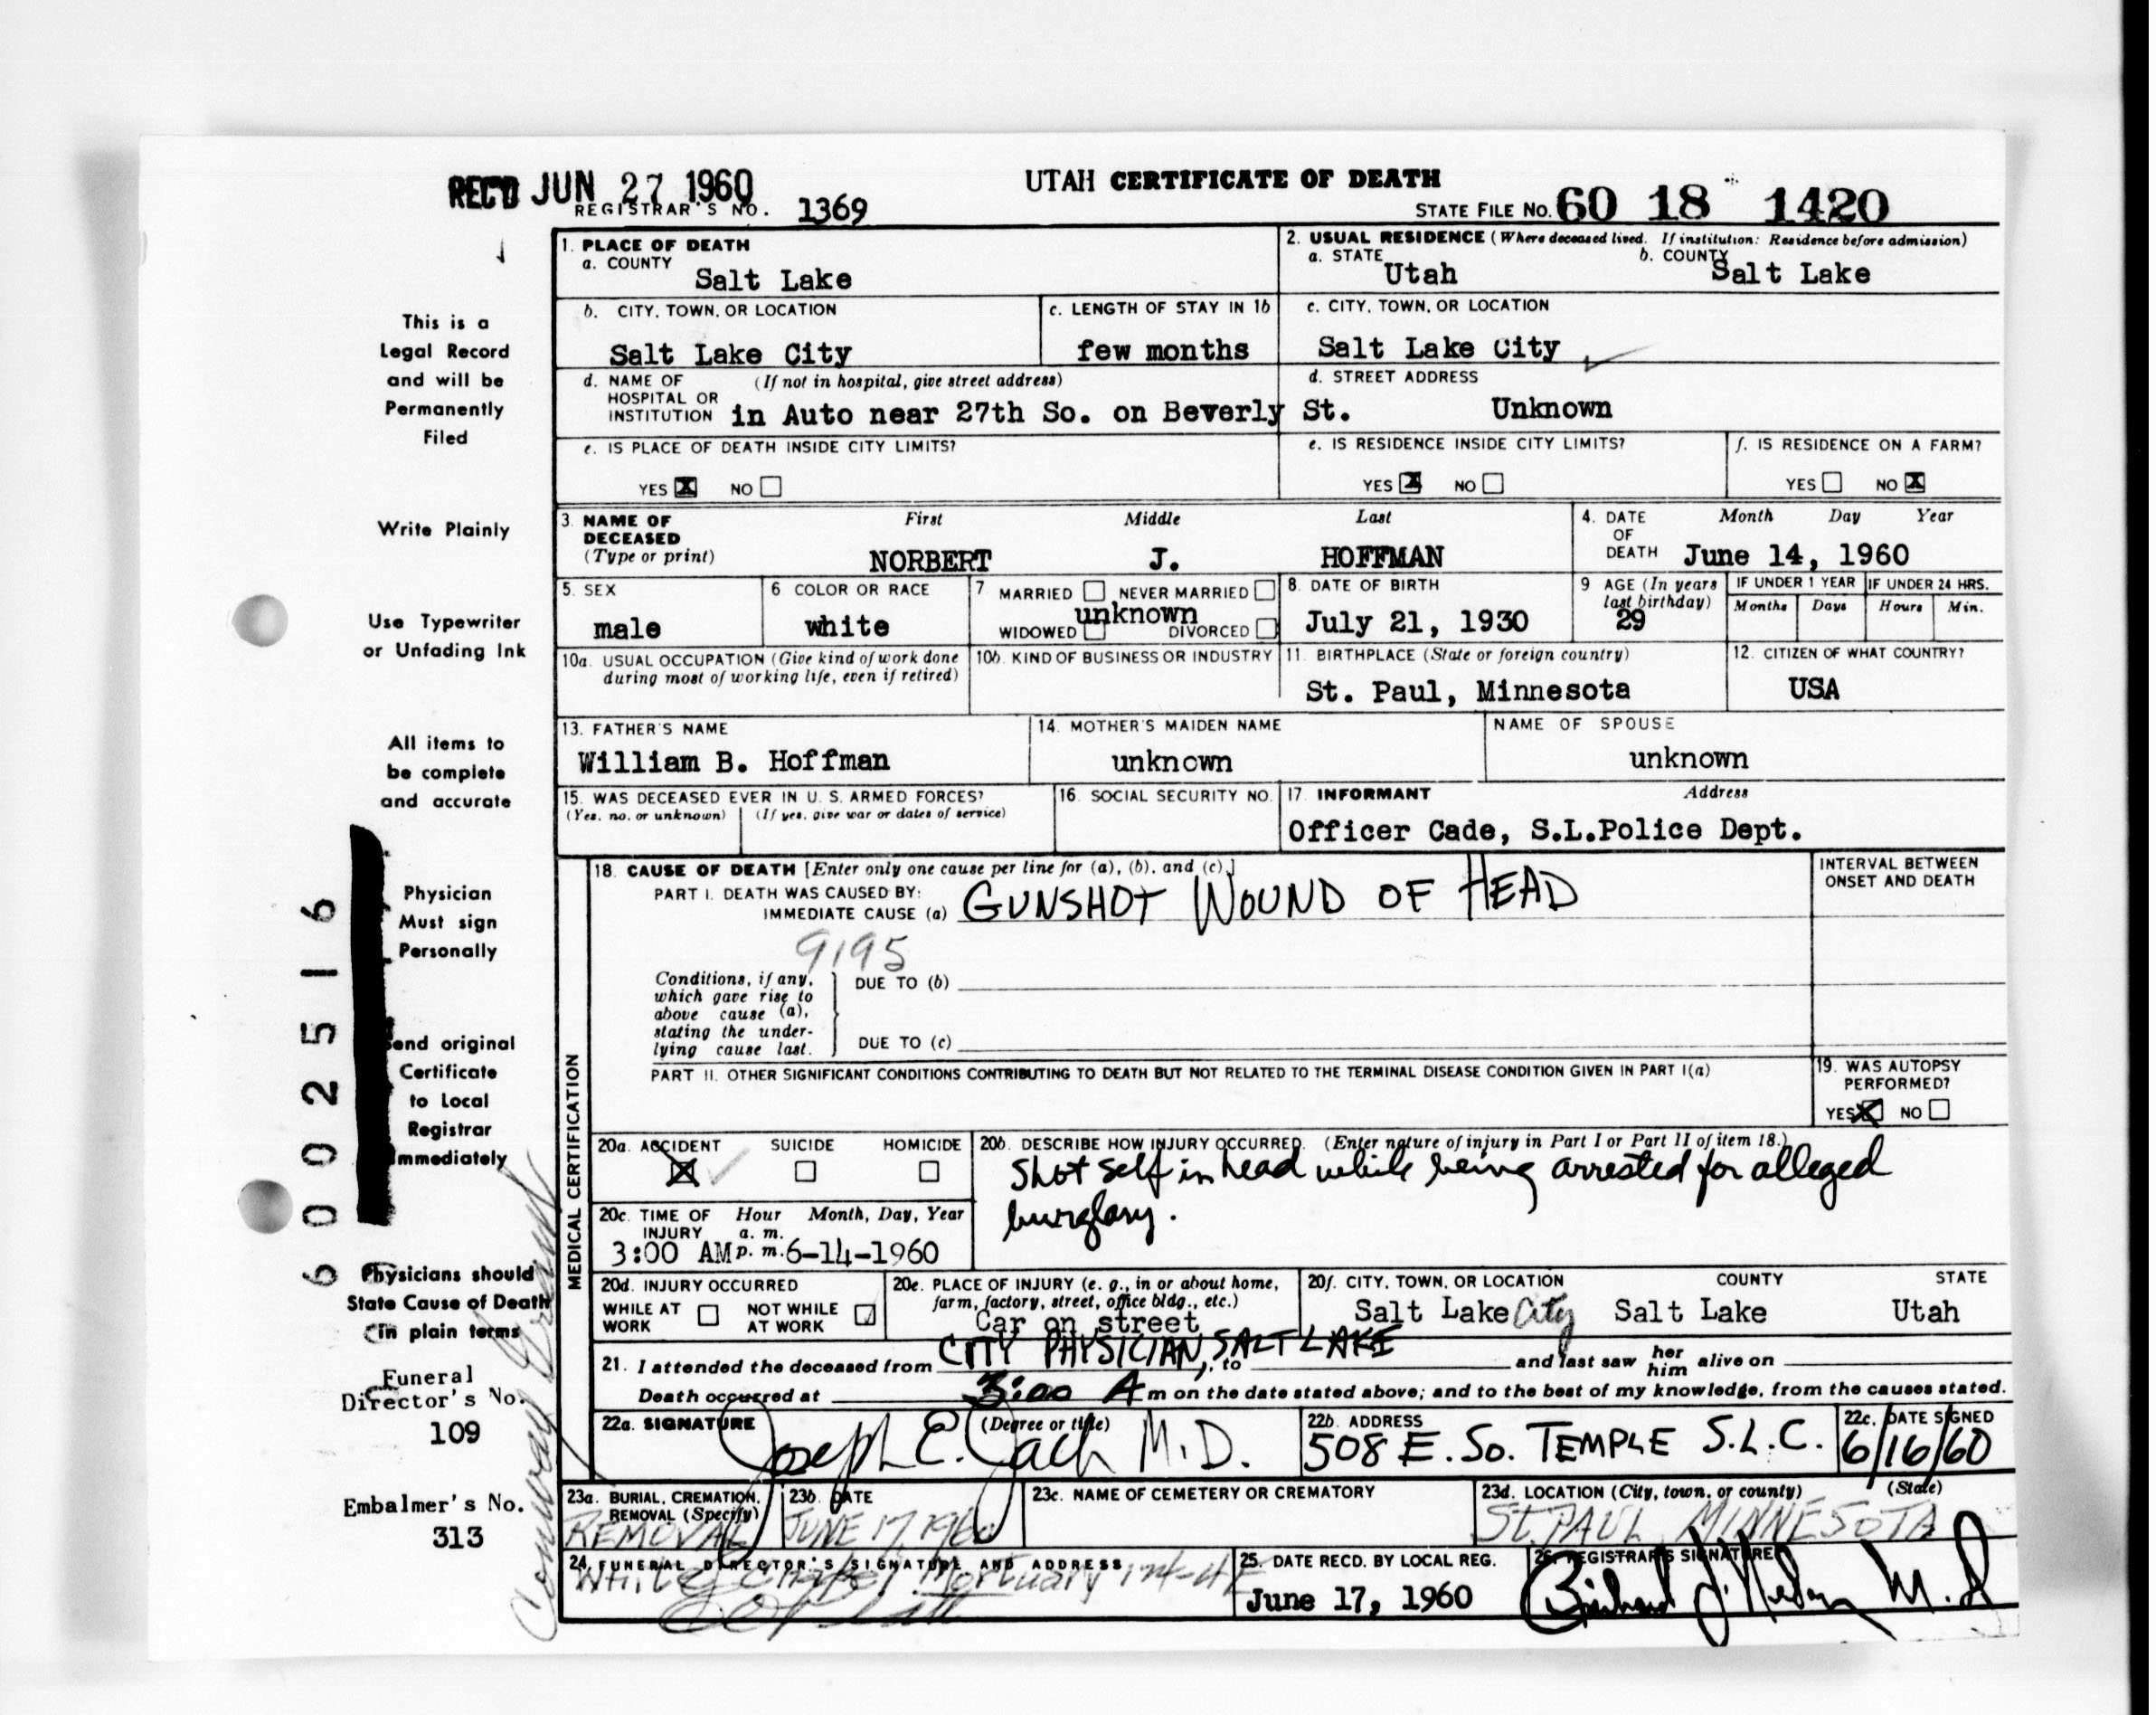 REC'D JUN 27 1960
REGISTRAR'S NO. 1369
UTAH CERTIFICATE OF DEATH
STATE FILE NO. 60 18 1420
1. PLACE OF DEATH
a. COUNTY Salt Lake
2. USUAL RESIDENCE (Where deceased lived. If institution: Residence before admission)
a. STATE Utah b. COUNTY Salt Lake
b. CITY, TOWN, OR LOCATION Salt Lake City
c. LENGTH OF STAY IN 1b few months
c. CITY, TOWN, OR LOCATION Salt Lake City
d. NAME OF HOSPITAL OR INSTITUTION (If not in hospital, give street address) in Auto near 27th So. on Beverly St.
d. STREET ADDRESS Unknown
e. IS PLACE OF DEATH INSIDE CITY LIMITS? YES X NO
e. IS RESIDENCE INSIDE CITY LIMITS? YES X NO
f. IS RESIDENCE ON A FARM? YES NO X
3. NAME OF DECEASED (Type or print) First Middle Last
NORBERT J. HOFFMAN
4. DATE OF DEATH Month Day Year
June 14, 1960
5. SEX male
6 COLOR OR RACE white
7 MARRIED NEVER MARRIED
unknown
WIDOWED DIVORCED
8. DATE OF BIRTH July 21, 1930
9 AGE (In years last birthday) 29
IF UNDER 1 YEAR Months Days
IF UNDER 24 HRS. Hours Min.
10a. USUAL OCCUPATION (Give kind of work done during most of working life, even if retired)
10b. KIND OF BUSINESS OR INDUSTRY
11. BIRTHPLACE (State or foreign country) St. Paul, Minnesota
12. CITIZEN OF WHAT COUNTRY? USA
13. FATHER'S NAME William B. Hoffman
14. MOTHER'S MAIDEN NAME unknown
NAME OF SPOUSE unknown
15. WAS DECEASED EVER IN U. S. ARMED FORCES?
(Yes, no, or unknown) (If yes, give war or dates of service)
16. SOCIAL SECURITY NO.
17 INFORMANT Address
Officer Cade, S.L.Police Dept.
MEDICAL CERTIFICATION
18. CAUSE OF DEATH [Enter only one cause per line for (a), (b), and (c).]
PART I. DEATH WAS CAUSED BY:
IMMEDIATE CAUSE (a) GUNSHOT WOUND OF HEAD
9195
INTERVAL BETWEEN ONSET AND DEATH
Conditions, if any, which gave rise to above cause (a), stating the underlying cause last.
DUE TO (b)
DUE TO (c)
PART II. OTHER SIGNIFICANT CONDITIONS CONTRIBUTING TO DEATH BUT NOT RELATED TO THE TERMINAL DISEASE CONDITION GIVEN IN PART I(a)
19. WAS AUTOPSY PERFORMED?
YES X NO
20a. ACCIDENT X SUICIDE HOMICIDE
20b. DESCRIBE HOW INJURY OCCURRED. (Enter nature of injury in Part I or Part II of item 18.)
Shot self in head while being arrested for alleged
burglary.
20c. TIME OF INJURY Hour Month, Day, Year
a. m.
3:00 AM p. m. 6-14-1960
20d. INJURY OCCURRED
WHILE AT WORK NOT WHILE AT WORK
20e. PLACE OF INJURY (e. g., in or about home, farm, factory, street, office bldg., etc.)
Car on street
20f. CITY, TOWN, OR LOCATION COUNTY STATE
Salt Lake City Salt Lake Utah
21. I attended the deceased from CITY PHYSICIAN, SALT LAKE, to and last saw her him alive on
Death occurred at 3:00 A m on the date stated above; and to the best of my knowledge, from the causes stated.
22a. SIGNATURE (Degree or title)
Joseph E. Jack M.D.
22b. ADDRESS
508 E. So. TEMPLE S.L.C.
22c. DATE SIGNED
6/16/60
23a. BURIAL, CREMATION, REMOVAL (Specify)
REMOVAL
23b. DATE
JUNE 17, 1960
23c. NAME OF CEMETERY OR CREMATORY
23d. LOCATION (City, town, or county) (State)
St. PAUL MINNESOTA
24. FUNERAL DIRECTOR'S SIGNATURE AND ADDRESS
White Chapel Mortuary
25. DATE RECD. BY LOCAL REG.
June 17, 1960
26. REGISTRAR'S SIGNATURE
M.D.
This is a
Legal Record
and will be
Permanently
Filed
Write Plainly
Use Typewriter
or Unfading Ink
All items to
be complete
and accurate
Physician
Must sign
Personally
end original
Certificate
to Local
Registrar
mmediately
Physicians should
State Cause of Death
in plain terms
Funeral
Director's No.
109
Embalmer's No.
313
6002516